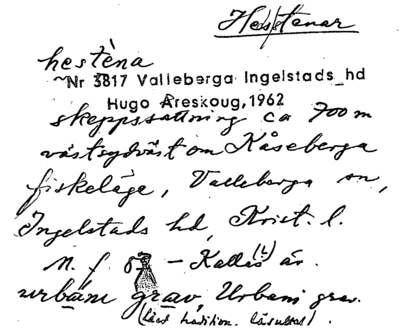 Hestenar
hestèna
Nr 3817 Valleberga Ingelstads hd
Hugo Areskoug, 1962
skeppssättning ca 700 m
västsydväst om Kåseberga
fiskeläge, Valleberga sn,
Ingelstads hd, Krist. l.
N. f. – Kallas (l) är
urbáni grav, Urbani grav.
(lärd tradition,